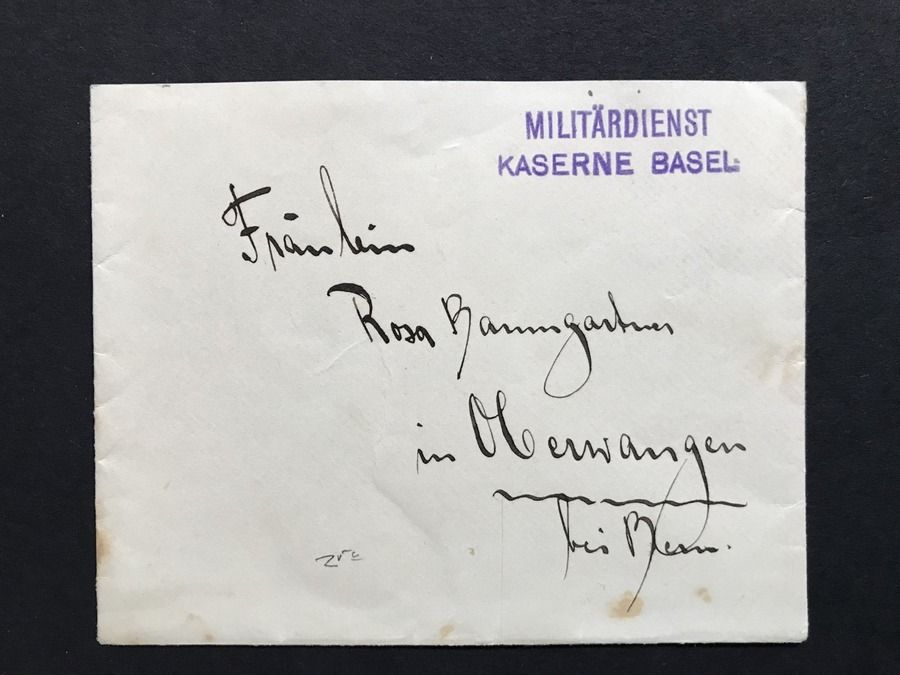 MILITÄRDIENST
KASERNE BASEL
Fräulein
Rosa Baumgartner
in Oberwangen
bei Bern.